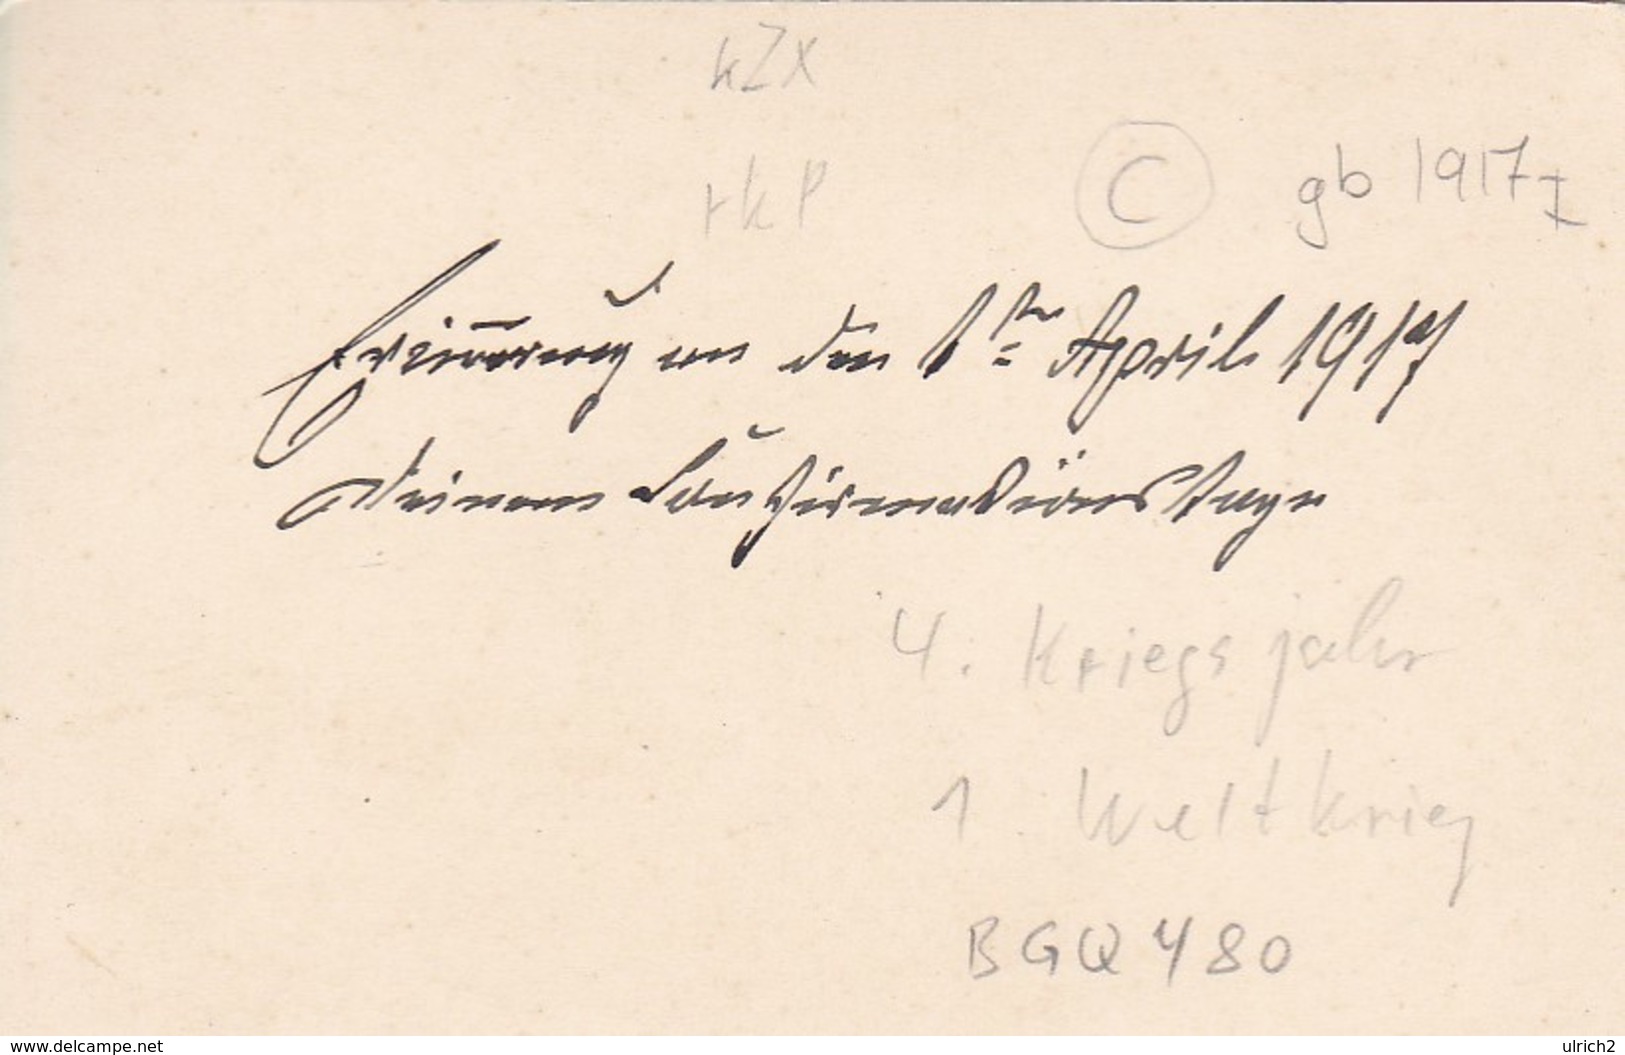 kZX
rkP
C gb 1917 I
Erin̅erung an den 1te April 1917
Deinem Confirmationstage
4. Kriegsjahr
1. Weltkrieg
BGQ 480
www.delcampe.net
ulrich2